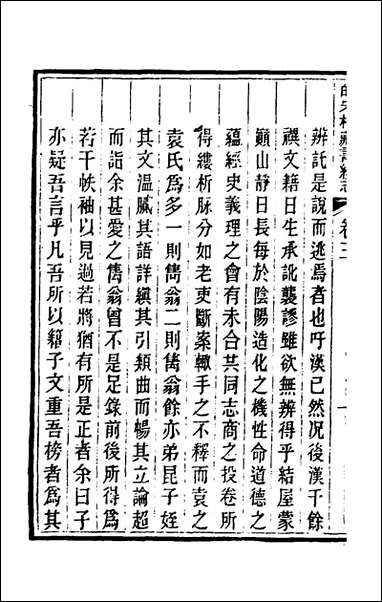 辨託是說而逃焉者也吁漢已然况後漢千餘
禩文籍日生承訛襲謬雖欲無辨得乎結屋蒙
巓山靜日長每於陰陽造化之機性命道德之
蘊經史義理之會有未合其同志商之投卷所
得縷析脉分如老吏斷案輙手之不釋而袁之
袁氏爲多一則雋翁二則雋翁餘亦弟昆子姪
其文溫膩其語詳縝其引類曲而暢其立論超
而詣余甚愛之雋翁曾不是足錄前後所得爲
若干帙袖以見過若將猶有所是正者余曰子
亦疑吾言乎凡吾所以籍子文重吾榜者爲其
藏書續志
卷三